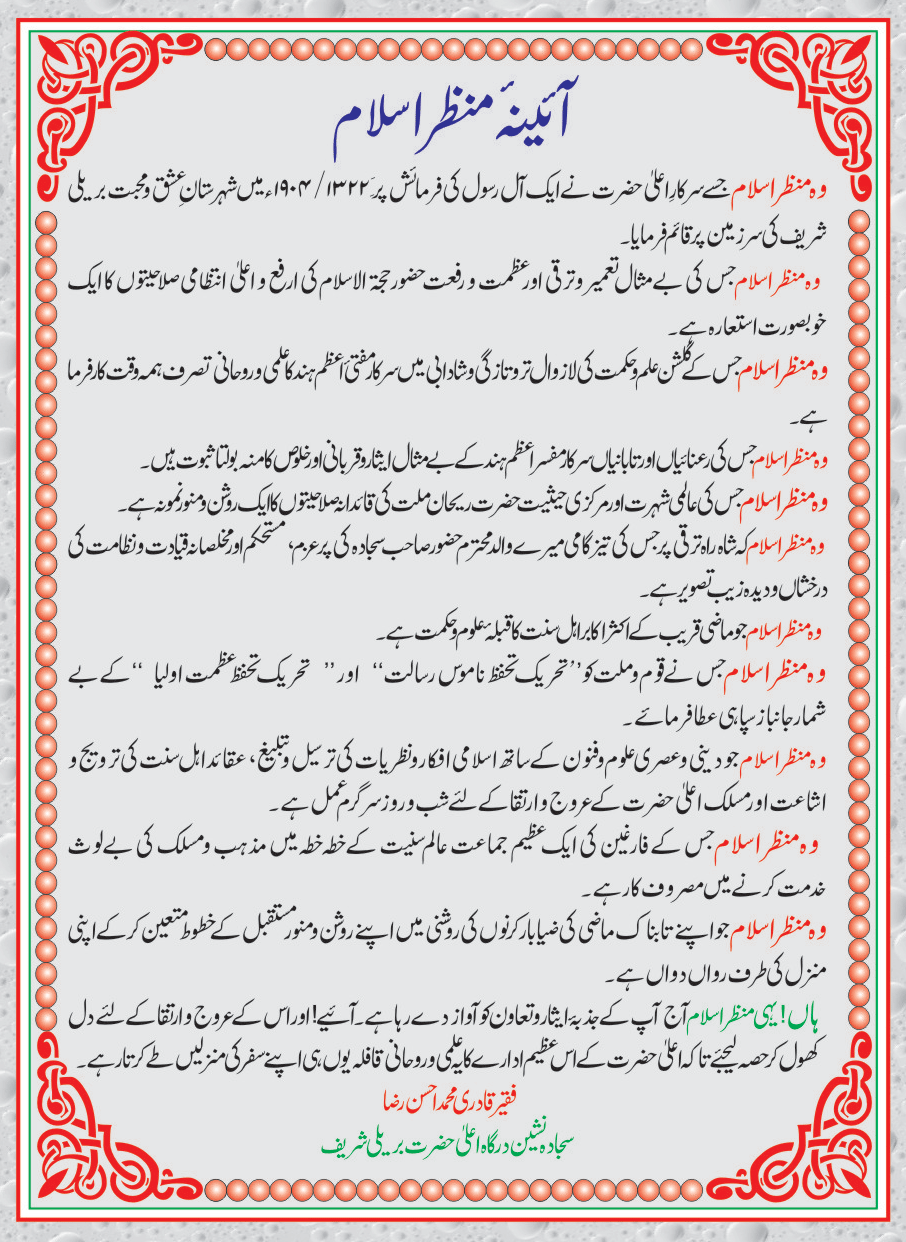 آئینۂ منظر اسلام
وہ منظر اسلام جسے سرکار اعلیٰ حضرت نے ایک آل رسول کی فرمائش پر ۱۳۲۲ / ۱۹۰۴ء میں شہرستانِ عشق و محبت بریلی
شریف کی سرزمین پر قائم فرمایا۔
وہ منظر اسلام جس کی بے مثال تعمیر و ترقی اور عظمت و رفعت حضور حجۃ الاسلام کی ارفع و اعلیٰ انتظامی صلاحیتوں کا ایک
خوبصورت استعارہ ہے۔
وہ منظر اسلام جس کے گلشن علم و حکمت کی لازوال تروتازگی و شادابی میں سرکار مفتی اعظم ہند کا علمی و روحانی تصرف ہمہ وقت کارفرما
ہے۔
وہ منظر اسلام جس کی رعنائیاں اور تابانیاں سرکار مفسر اعظم ہند کے بے مثال ایثار و قربانی اور خلوص کا منہ بولتا ثبوت ہیں۔
وہ منظر اسلام جس کی عالمی شہرت اور مرکزی حیثیت حضرت ریحان ملت کی قائدانہ صلاحیتوں کا ایک روشن و منور نمونہ ہے۔
وہ منظر اسلام کہ شاہ راہ ترقی پر جس کی تیز گامی میرے والد محترم حضور صاحب سجادہ کی پر عزم، مستحکم اور مخلصانہ قیادت و نظامت کی
درخشاں و دیدہ زیب تصویر ہے۔
وہ منظر اسلام جو ماضی قریب کے اکثر اکابر اہل سنت کا قبلۂ علوم و حکمت ہے۔
وہ منظر اسلام جس نے قوم و ملت کو ’’تحریک تحفظ ناموس رسالت‘‘ اور ’’ تحریک تحفظ عظمت اولیا ‘‘ کے بے
شمار جانباز سپاہی عطا فرمائے ۔
وہ منظر اسلام جو دینی و عصری علوم و فنون کے ساتھ اسلامی افکار و نظریات کی ترسیل و تبلیغ، عقائد اہل سنت کی ترویج و
اشاعت اور مسلک اعلیٰ حضرت کے عروج و ارتقا کے لئے شب و روز سرگرم عمل ہے ۔
وہ منظر اسلام جس کے فارغین کی ایک عظیم جماعت عالم سنیت کے خطہ خطہ میں مذہب و مسلک کی بے لوث
خدمت کرنے میں مصروف کار ہے ۔
وہ منظر اسلام جو اپنے تابناک ماضی کی ضیا بار کرنوں کی روشنی میں اپنے روشن و منور مستقبل کے خطوط متعین کر کے اپنی
منزل کی طرف رواں دواں ہے ۔
ہاں! یہی منظر اسلام آج آپ کے جذبۂ ایثار و تعاون کو آواز دے رہا ہے۔ آئیے! اور اس کے عروج و ارتقا کے لئے دل
کھول کر حصہ لیجئے تاکہ اعلیٰ حضرت کے اس عظیم ادارے کا یہ علمی و روحانی قافلہ یوں ہی اپنے سفر کی منزلیں طے کرتا رہے ۔
فقیر قادری محمد احسن رضا
سجادہ نشین درگاہ اعلیٰ حضرت بریلی شریف